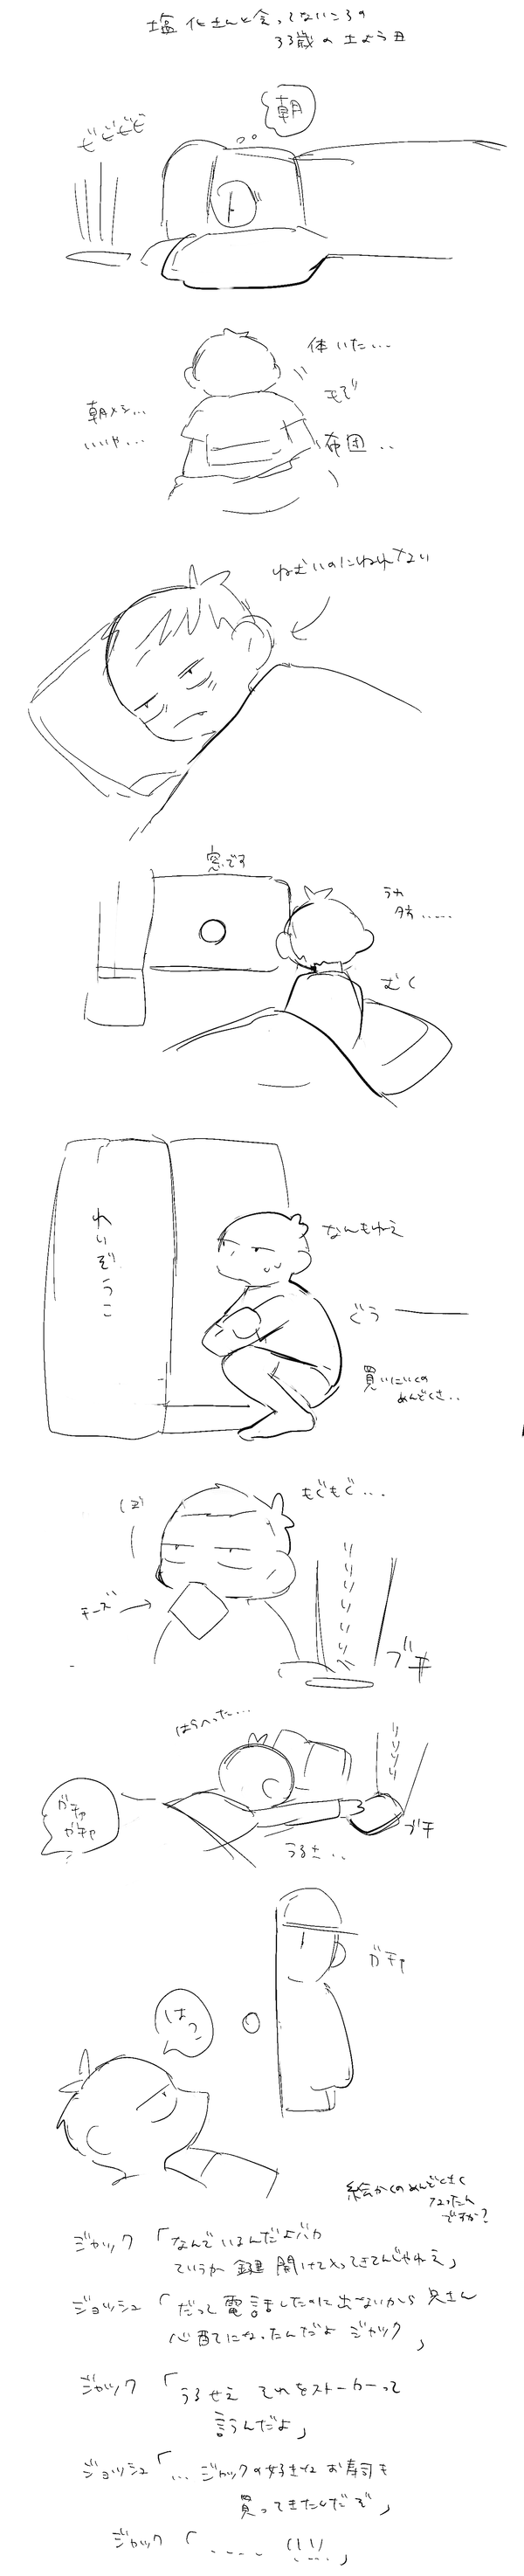 塩化さんと会ってないころの
33歳の土よう日
朝
ビビビビ
体いたい…
もぞ
布団..
朝メシ…
いいや…
ねむいのにねれない
窓です
うわ
夕方……
むく
れいぞうこ
なんもねえ
どう――
買いにいくの
めんどくさ..
もぐもぐ...
チーズ→
リリリリリリリ
ブチ
はらへった…
リリリリ
ブチ
うるさ..
ガチャ
ガチャ
ガチャ
はっ?
絵かくのめんどくさく
なったん
ですか?
ジャック「なんでいるんだよバカ
ていうか鍵開けて入ってきてんじゃねえ」
ジョッシュ「だって電話したのに出ないから兄さん
心配になったんだよ ジャック」
ジャック「うるせえ それをストーカーって
言うんだよ」
ジョッシュ「…ジャックの好きなお寿司も
買ってきたんだぞ」
ジャック「....(!!)」